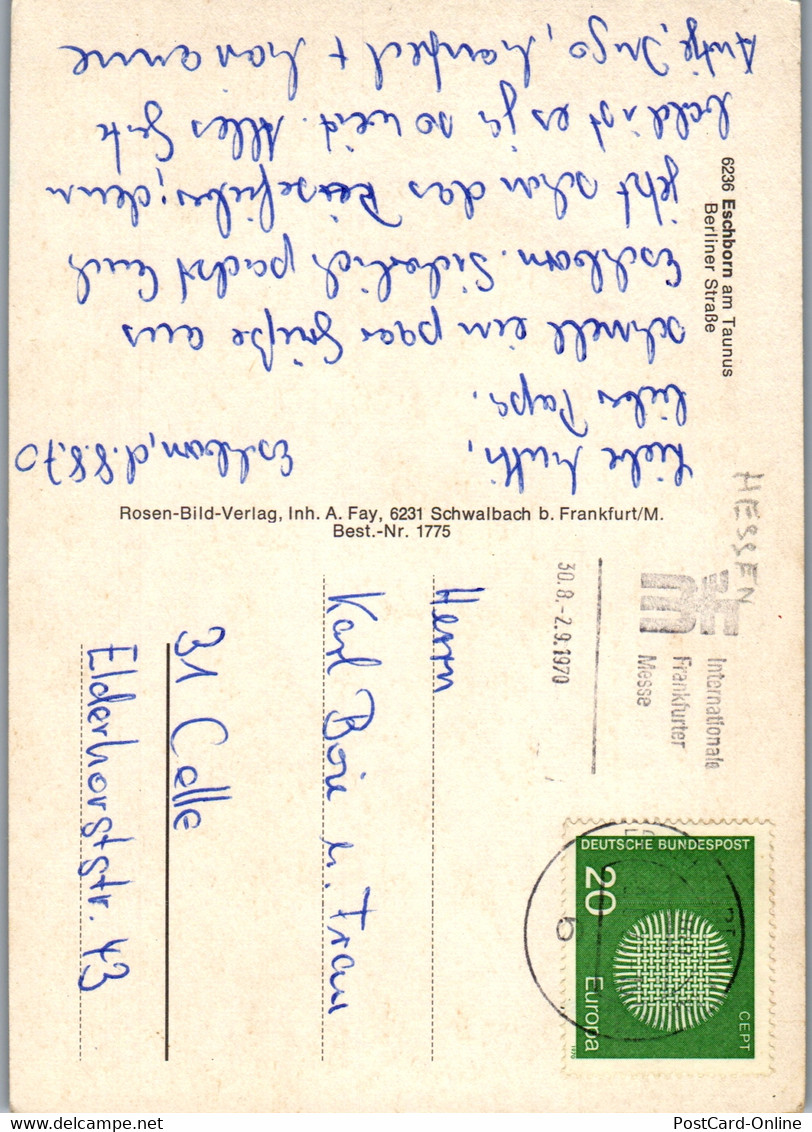 Eschborn, d. 8.8.70
Liebe Mutti,
lieber Paps.
schnell ein paar Grüße aus
Eschborn. Sicherlich packt Euch
jetzt schon das Reisefieber, denn
bald ist es ja so weit. Alles Gute
Antje, Ingo, Manfred + Marianne
6236 Eschborn am Taunus
Berliner Straße
Rosen-Bild-Verlag, Inh. A. Fay, 6231 Schwalbach b. Frankfurt/M.
Best.-Nr. 1775
HESSEN
Internationale
Frankfurter
Messe
30.8.-2.9.1970
DEUTSCHE BUNDESPOST
20
Europa
CEPT
1970
b
Herrn
Karl Boie u. Frau
31 Celle
Elderhorststr. 43
PostCard-Online
delcampe.net